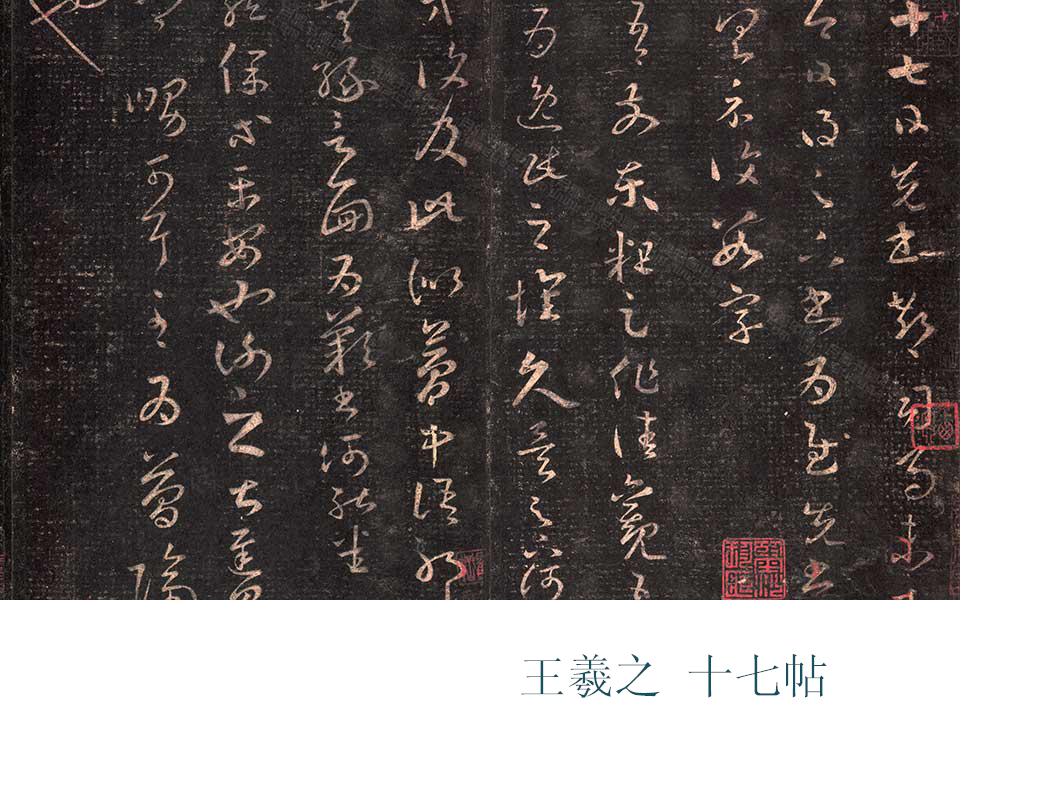 十七日先書郗司馬未
即日得足下書為慰先書
具示復數字
吾前東粗足作佳觀吾
為逸民之懷久矣足下何
方復及此似夢中語耶
無緣言面為歎書何能悉
龍保等平安也謝之甚遲見
卿舅可耳至為簡隔
王羲之 十七帖